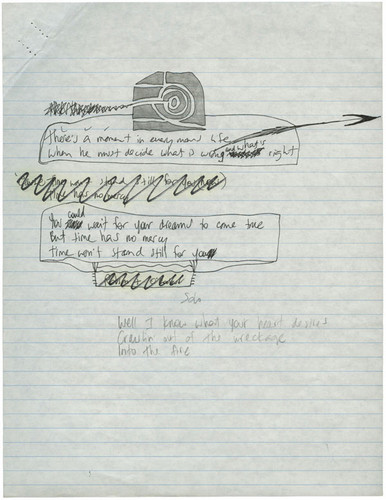 There's a moment in every mans life
When he must decide what is wrong and what is right
time won't stand still for you
time has no mercy
You could wait for your dreams to come true
But time has no mercy
time won't stand still for you
Solo
Well I know what your heart desires
Crawlin out of the wreckage
Into the fire